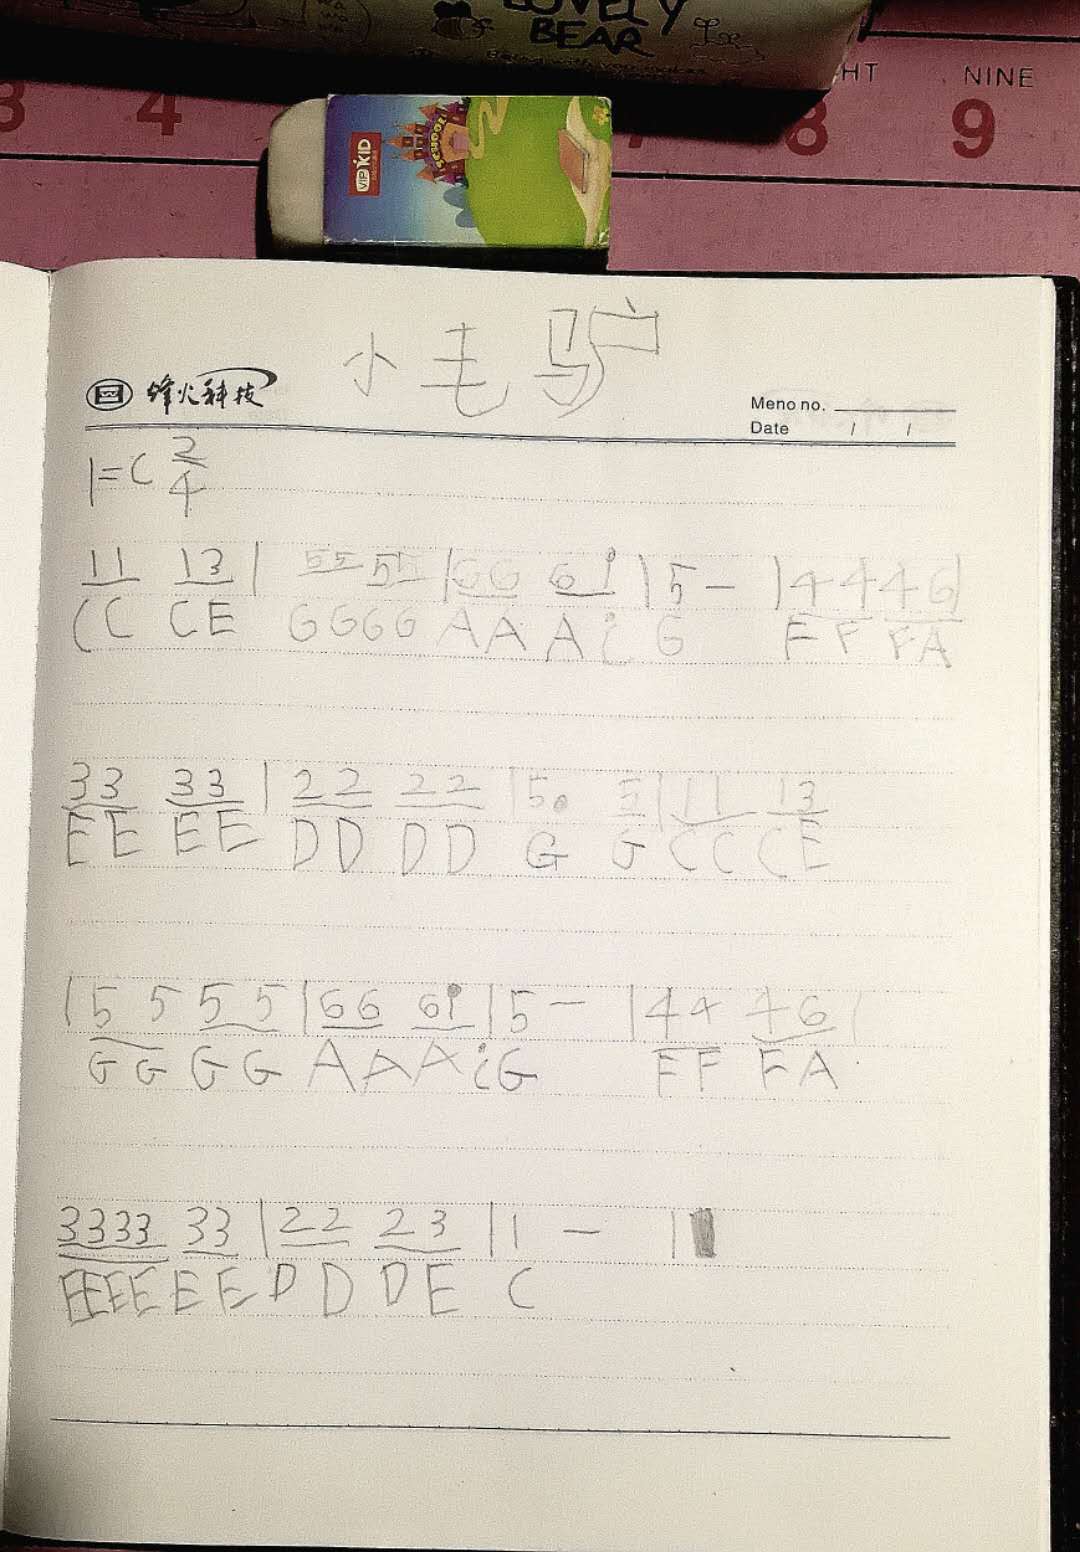 LOVELY
BEAR
HT NINE
3 4 7 8 9
VIPKID
SCHOOL
小毛驴
烽火科技
Meno no.
Date / /
1=C 2/4
11 13 | 55 55 | 66 6i | 5 — | 44 46 |
CC CE GGGG AA A ċ G F F FA
33 33 | 22 22 | 5. 5 | 11 13
EE EE DD DD G G CC CE
| 5 5 5 5 | 66 6i | 5 — | 44 46 |
G G G G A A A ċ G FF FA
3333 33 | 22 23 | 1 — |
EEEE EE D D D E C